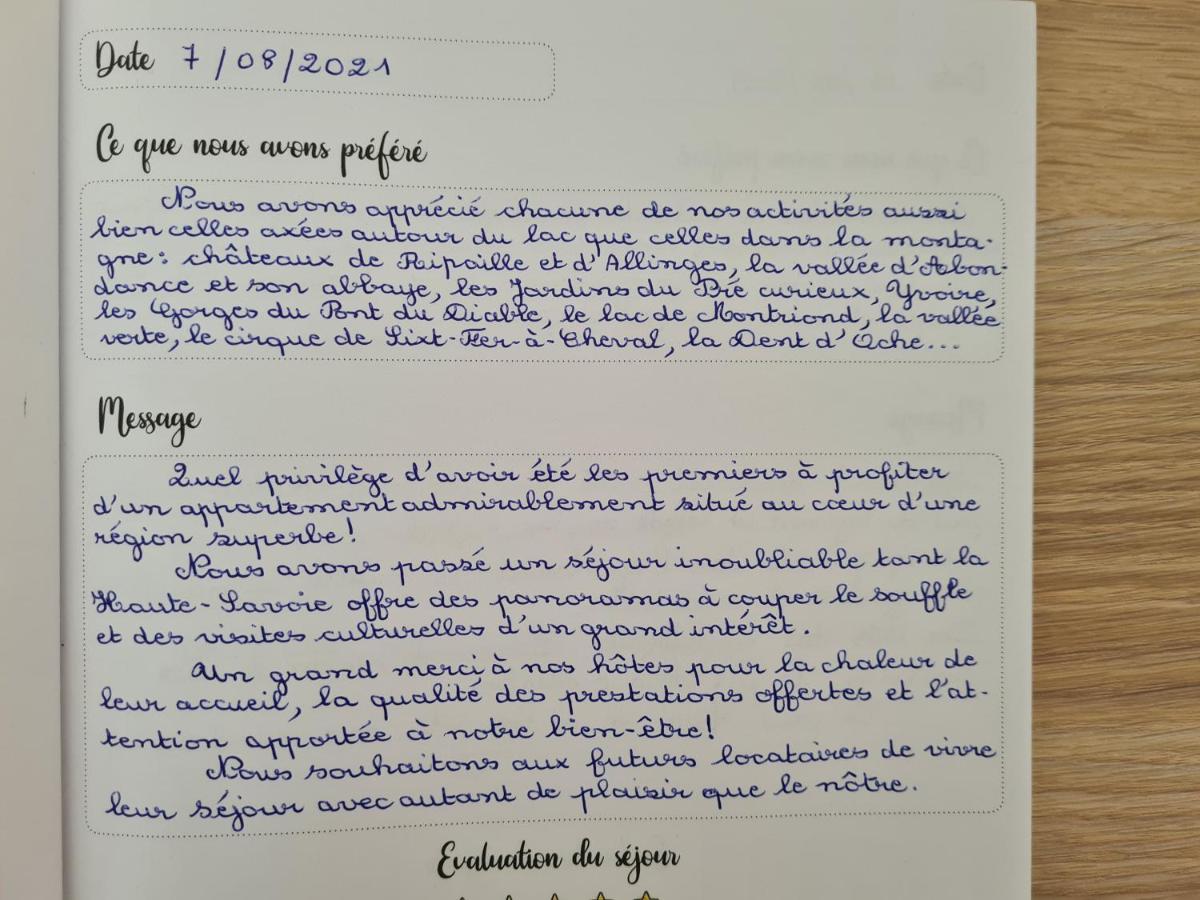 Date 7/08/2021
Ce que nous avons préféré
Nous avons apprécié chacune de nos activités aussi
bien celles axées autour du lac que celles dans la monta-
gne : châteaux de Ripaille et d'Allinges, la vallée d'Abon-
dance et son abbaye, les Jardins du Pré curieux, Yvoire,
les Gorges du Pont du Diable, le lac de Montriond, la vallée
verte, le cirque de Sixt-Fer-à-Cheval, la Dent d'Oche...
Message
Quel privilège d'avoir été les premiers à profiter
d'un appartement admirablement situé au cœur d'une
région superbe!
Nous avons passé un séjour inoubliable tant la
Haute-Savoie offre des panoramas à couper le souffle
et des visites culturelles d'un grand intérêt.
Un grand merci à nos hôtes pour la chaleur de
leur accueil, la qualité des prestations offertes et l'at-
tention apportée à notre bien-être!
Nous souhaitons aux futurs locataires de vivre
leur séjour avec autant de plaisir que le nôtre.
Evaluation du séjour